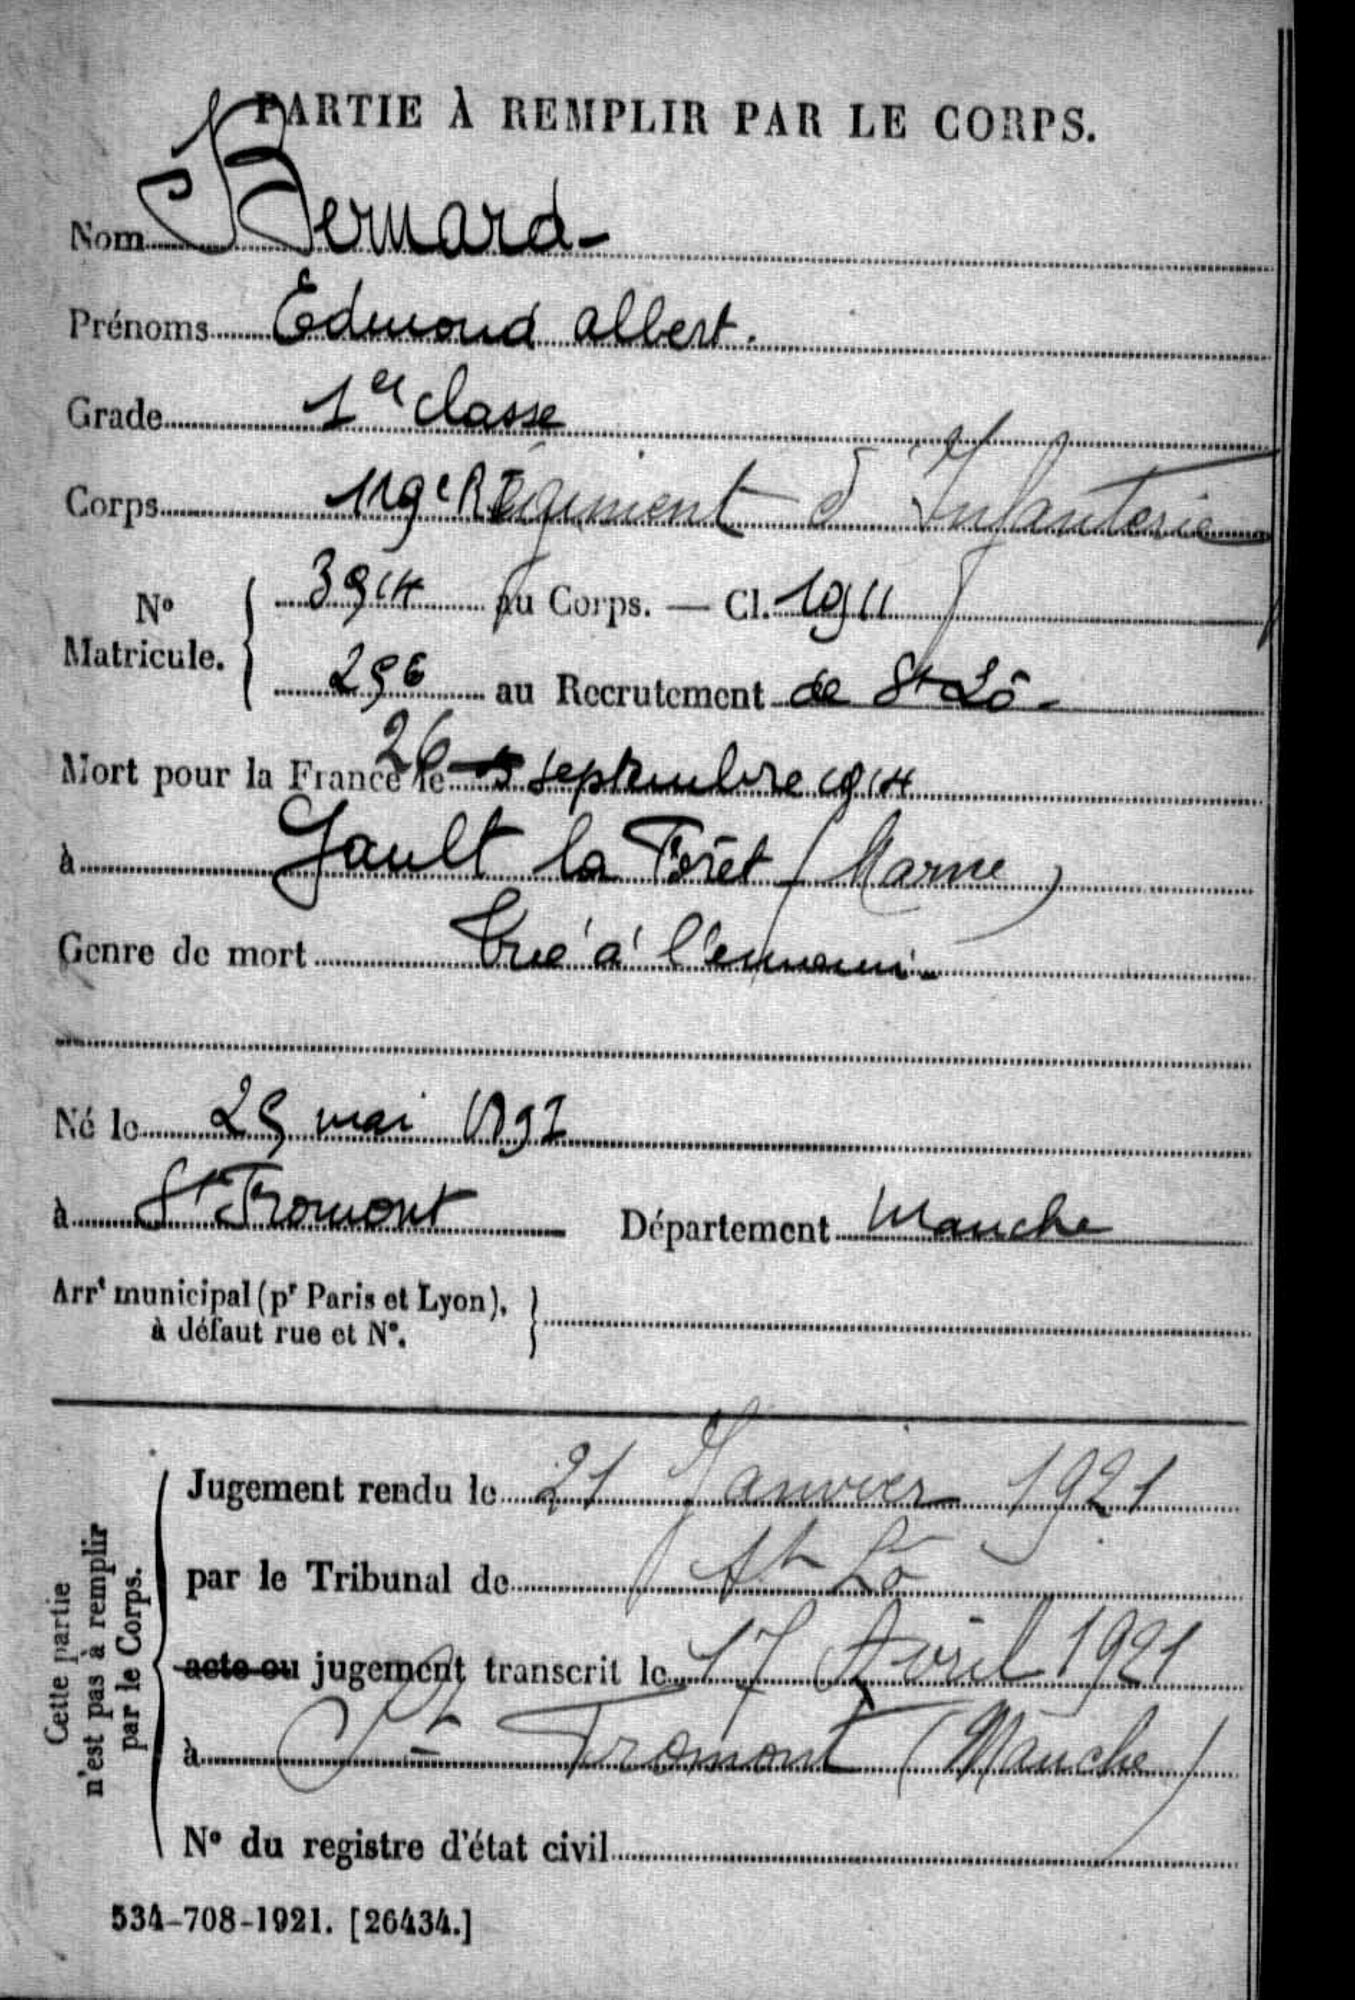 PARTIE À REMPLIR PAR LE CORPS.
Nom Bernard
Prénoms Edmond albert.
Grade 1er classe
Corps 119e Régiment d'Infanterie
No Matricule. 3914 au Corps. — Cl. 1911
296 au Recrutement de St Lô -
Mort pour la France le 26 septembre 1914
à Gault la Forêt (Marne)
Genre de mort tué à l'ennemi -
Né le 25 mai 1891
à St Fromont Département Manche
Arrt municipal (pr Paris et Lyon), à défaut rue et No.
Cette partie n'est pas à remplir par le Corps.
Jugement rendu le 21 Janvier 1921
par le Tribunal de St Lô
acte ou jugement transcrit le 17 Avril 1921
à St Fromont (Manche)
No du registre d'état civil
534-708-1921. [26434.]